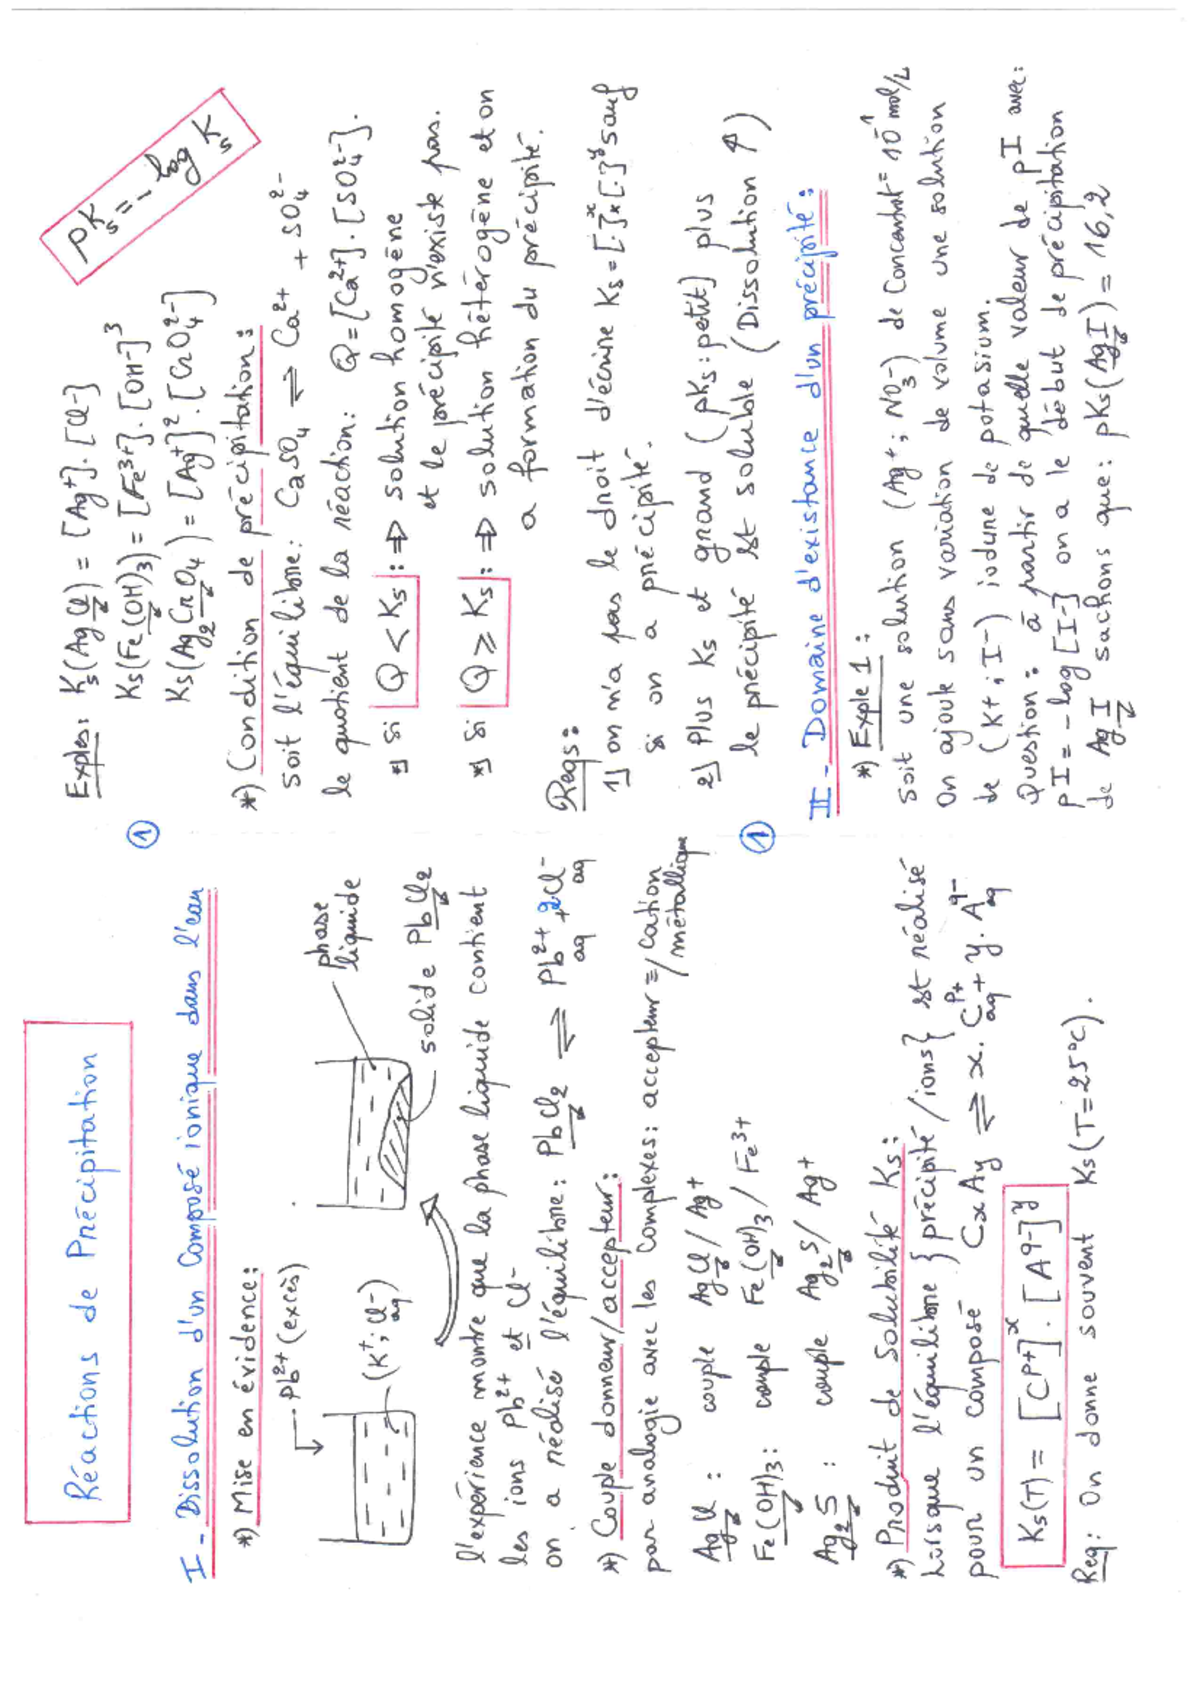 Réactions de Précipitation
I - Dissolution d'un Composé ionique dans l'eau
*) Mise en évidence:
Pb²⁺ (excès)
(K⁺; Cl⁻aq)
phase
liquide
solide PbCl₂
l'expérience montre que la phase liquide contient
les ions Pb²⁺ et Cl⁻
on a réalisé l'équilibre: PbCl₂ ⇌ Pb²⁺aq + 2Cl⁻aq
*) Couple donneur/accepteur:
par analogie avec les Complexes: accepteur =/cation
métallique
AgCl : couple AgCl/Ag⁺
Fe(OH)₃: couple Fe(OH)₃/Fe³⁺
Ag₂S : couple Ag₂S/Ag⁺
*) Produit de Solubilité Ks:
Lorsque l'équilibre }précipité/ions{ st réalisé
pour un composé CxAy ⇌ x.Cᵖ⁺aq + y.A^q-aq
Ks(T) = [Cᵖ⁺]ˣ.[A^q-]ʸ
Req: On donne souvent Ks(T=25°C).
①
Exples: Ks(AgCl) = [Ag⁺].[Cl⁻]
Ks(Fe(OH)₃) = [Fe³⁺].[OH⁻]³
Ks(Ag₂CrO₄) = [Ag⁺]².[CrO₄²⁻]
pKs = -log Ks
*) Condition de précipitation:
soit l'équilibre: CaSO₄ ⇌ Ca²⁺ + SO₄²⁻
le quotient de la réaction: Q=[Ca²⁺].[SO₄²⁻].
*] si Q < Ks :⇒ solution homogène
et le précipité n'existe pas.
*] si Q ≥ Ks :⇒ solution hétérogène et on
a formation du précipité.
Reqs:
1] on n'a pas le droit d'écrire Ks=[.]ˣ*[.]ʸ sauf
si on a précipité.
2] Plus Ks et grand (pKs:petit) plus
le précipité st soluble (Dissolution ↑)
①
II - Domaine d'existance d'un précipité:
*) Exple 1:
soit une solution (Ag⁺; NO₃⁻) de Concentrat°=10⁻¹mol/L
On ajoute sans variation de volume une solution
de (K⁺; I⁻) iodure de potasium.
Question: à partir de quelle valeur de pI avec:
pI = -log[I⁻] on a le début de précipitation
de AgI sachons que: pKs(AgI) = 16,2